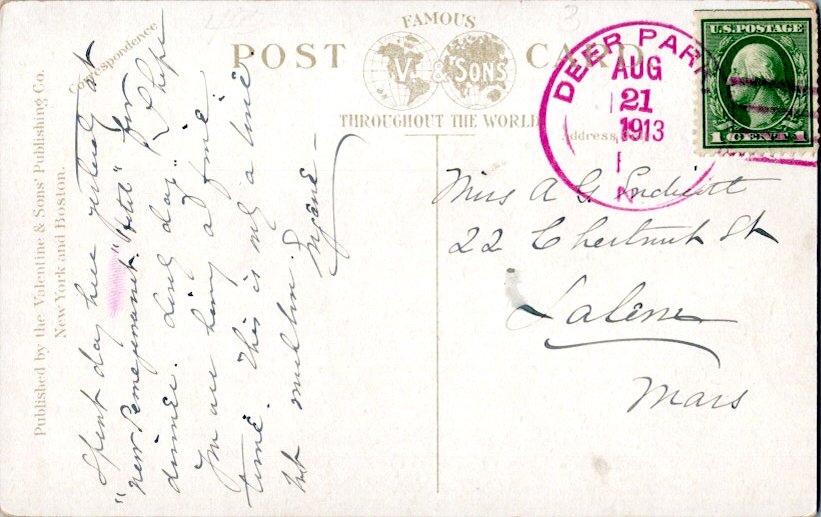 FAMOUS
POST CARD
V. & SONS
THROUGHOUT THE WORLD
Correspondence
Address
Published by the Valentine & Sons' Publishing Co.
New York and Boston.
Spent day here yesterday at
"new Pemegewasset" "Hotel" for
dinner. Lovely day. & Hope
I'm are having a fine
time. This is only a line
but much love.
DEER PARK
AUG
21
1913
N
U.S. POSTAGE
1 CENT 1
Miss A G Endicott
22 Chestnut St
Salem
Mass